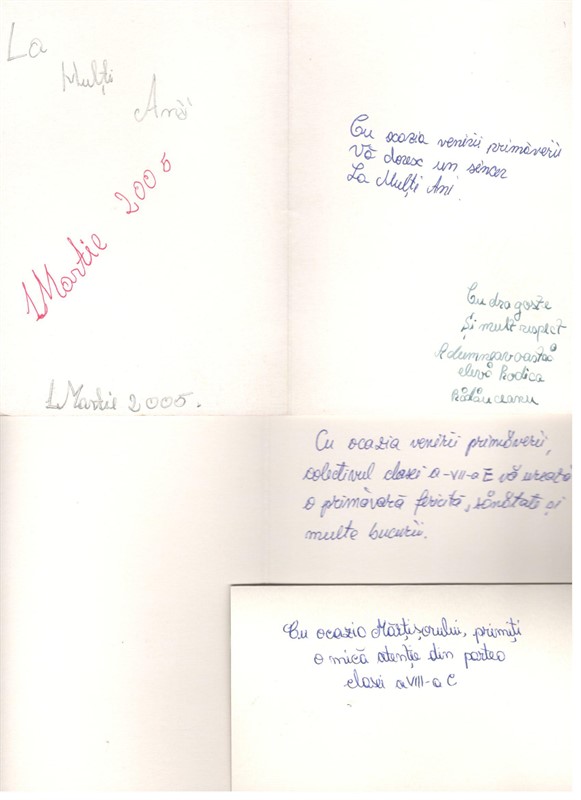 La
Mulți
Ani
1 Martie 2005
1 Martie 2005.
Cu ocazia venirii primăverii
Vă doresc un sincer
La Mulți Ani
Cu dragoste
și mult respect
Adumneavoastră
elevă Rodica
Rădăuceanu
Cu ocazia venirii primăverii,
colectivul clasei a-VII-a E vă urează
o primăvară fericită, sănătate și
multe bucurii.
Cu ocazia Mărțișorului, primiți
o mică atenție din partea
clasei a VIII-a C